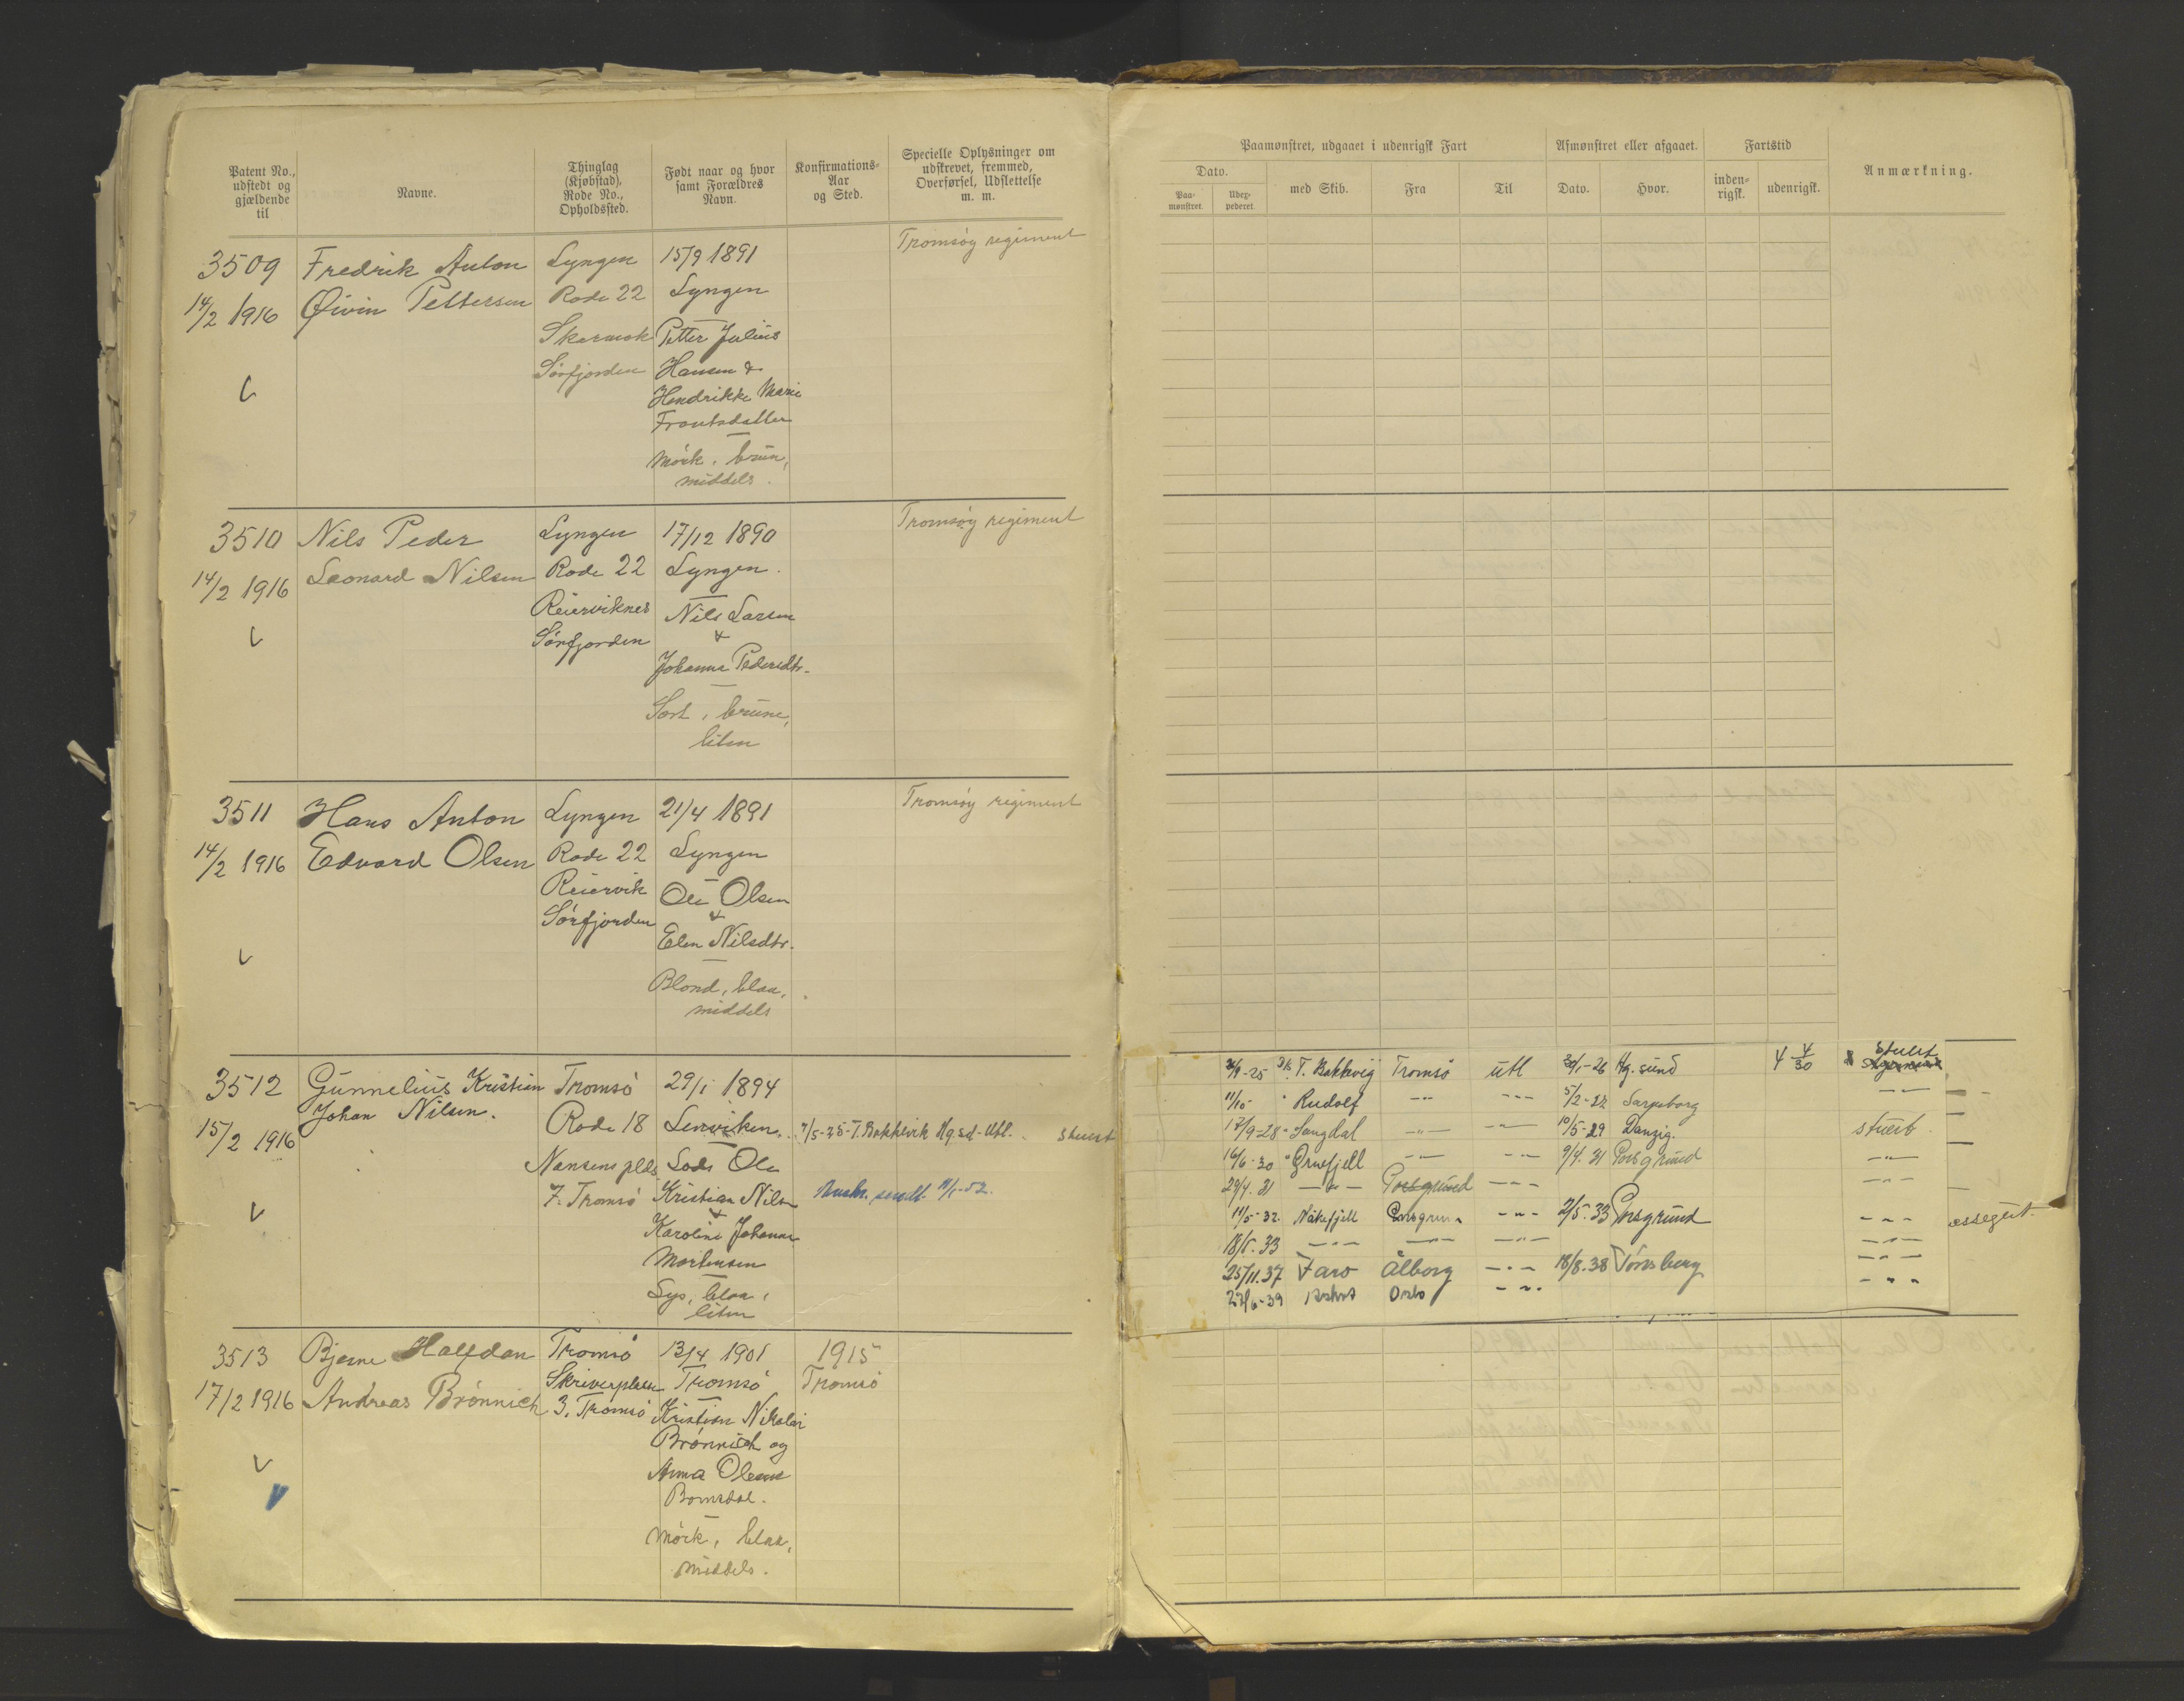 Patent No., udstedt og gjældende til
Navne.
Thinglag (Kjøbstad), Rode No., Opholdssted.
Født naar og hvor samt Forældres Navn.
Konfirmations-Aar og Sted.
Specielle Oplysninger om udskrevet, fremmed, Overførsel, Udslettelse m. m.
Paamønstret, udgaaet i udenrigsk Fart
Afmønstret eller afgaaet.
Fartstid
Anmærkning.
Dato.
Paa-mønstret.
Udex-pederet.
med Skib.
Fra
Til
Dato.
Hvor.
inden-rigsk.
udenrigsk.
3509
14/2 1916
Fredrik Anton
Øivin Pettersen
Lyngen
Rode 22
Skarmok
Sørfjorden
15/9 1891
Lyngen
Petter Julius
Hansen &
Hendrikke Marie
Frantsdatter
Mörk, brun,
middels.
Tromsøy regiment
3510
14/2 1916
Nils Peder
Leonard Nilsen
Lyngen
Rode 22
Reierviknes
Sörfjorden
17/12 1890
Lyngen.
Nils Larsen
&
Johanna Pedersdtr.
Sort, brune,
liten
Tromsøy regiment
3511
14/2 1916
Hans Anton
Edvard Olsen
Lyngen
Rode 22
Reiervik
Sörfjorden
21/4 1891
Lyngen
Ole Olsen
&
Elen Nilsdtr.
Blond, blaa,
middels
Tromsøy regiment
3512
15/2 1916
Gunnelius Kristian
Johan Nilsen.
Tromsö
Rode 18
Nansens plds
7. Tromsö
29/1 1894
Lenviken.
Lods Ole
Kristian Nilsen
&
Karoline Johanne
Mortensen
Lys, blaa,
liten
7/5-25-T. Bakkevik Hg.sd-Utl.
Stuert
11/1-52.
-25 T. Bakkevig Tromsö utl 30/1-26 Hg.sund 4 4/30 Stuert
11/10 " Rudolf -"- -"- 5/2-28 Sarpsborg -"-
17/9-28 " Sangdal -"- -"- 10/5-29 Danzig. stuert
16/6-30 " Ørnefjell -"- -"- 9/4.31 Porsgrund -"-
29/4.31 -"- Porsgrund -"- -"-
11/5-32. Nåkefjell Porsgrun -"- 2/5.33 Porsgrund -"-
18/5.33 -"- -"- -"- -"-
25/11.37 Faro Ålborg -"- 18/8.38 Tönsberg -"-
27/6-39 Oslo -"- -"-
3513
17/2 1916
Bjarne Halfdan
Andreas Brönnich
Tromsö
Skriverplassen
3. Tromsö
13/4 1901
Tromsö
Kristian Nikolai
Brönnich og
Anna Olsen
Bomsdal.
Mörk, blaa,
middels.
1915
Tromsö